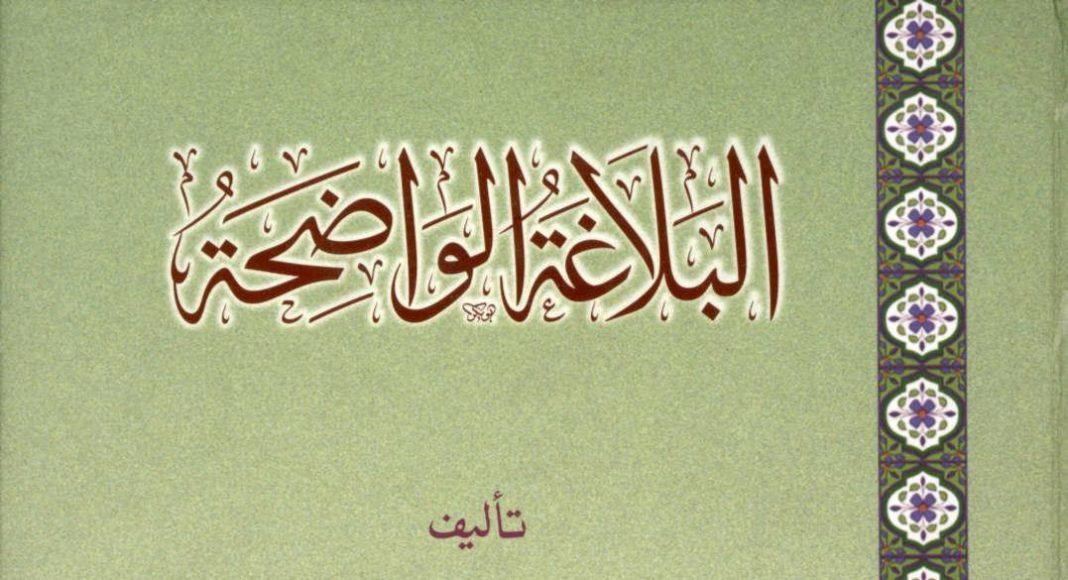 البَلَاغَةُ الوَاضِحَةُ
تأليف